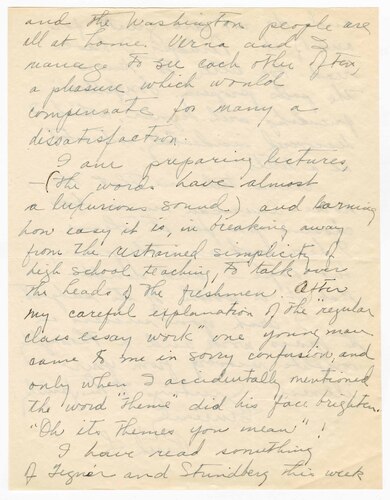 and the Washington people are
ill at home. Verna and I
manage to see each other often,
a pleasure which would
compensate for many a
dissatisfaction.
I am preparing lectures,
—(the words have almost
a luxurious sound.) and learning
how easy it is, in breaking away
from the restrained simplicity of
high school teaching, to talk over
the heads of the freshmen. After
my careful explanation of the "regular
class essay work" one young man
came to me in sorry confusion, and
only when I accidentally mentioned
the word "theme" did his face brighten.
"Oh its themes you mean"!
I have read something
of Tegnér and Strindberg this week